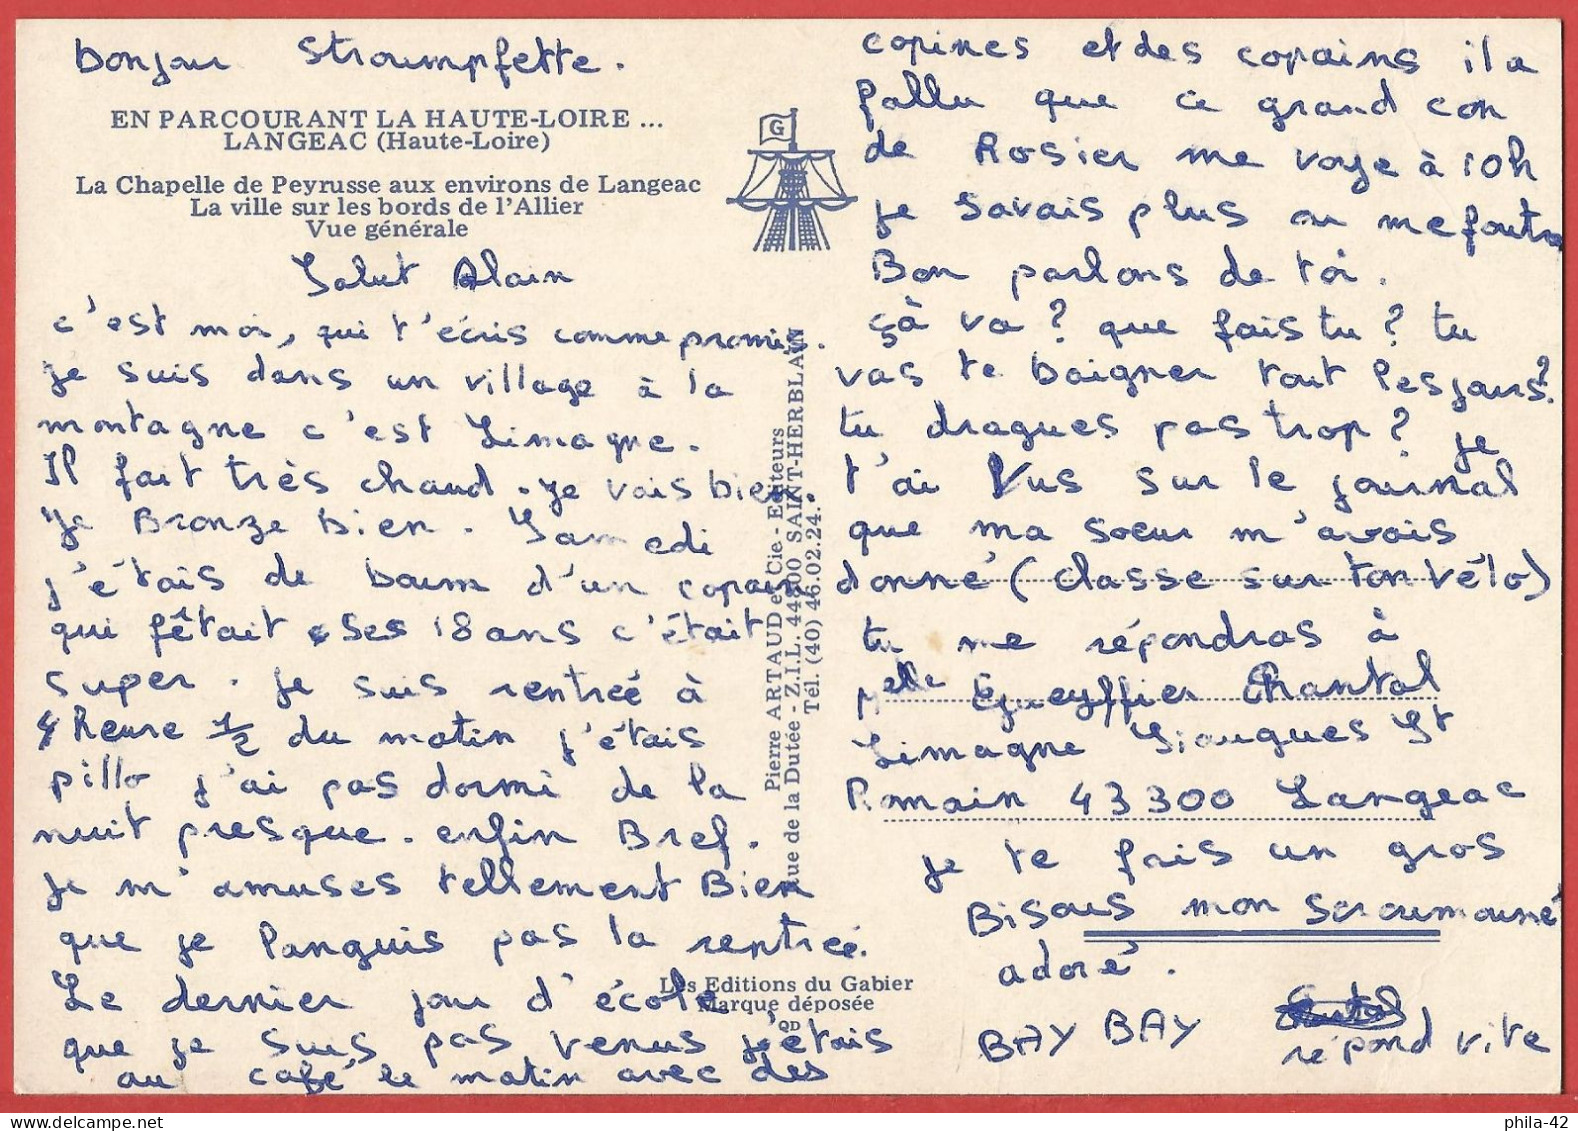 bonjour Stroumpfette.
EN PARCOURANT LA HAUTE-LOIRE ...
LANGEAC (Haute-Loire)
La Chapelle de Peyrusse aux environs de Langeac
La ville sur les bords de l'Allier
Vue générale
G
Salut Alain
c'est moi, qui t'écris comme promis.
je suis dans un village à la
montagne c'est Limagne.
Il fait très chaud. je vais bien.
je Bronze bien. Samedi
j'étais de boum d'un copain
qui fêtait ses 18 ans c'était
super. je suis rentreé à
4 heure 1/2 du matin j'étais
pillo j'ai pas dormi de la
nuit presque. enfin Bref.
je m'amuses tellement Bien
que je languis pas la rentreé.
Le dernier jour d'école
que je suis pas venus j'étais
au café le matin avec des
Pierre ARTAUD et Cie - Editeurs
rue de la Dutée - Z.I.L. 44800 SAINT-HERBLAIN
Tél. (40) 46.02.24.
Les Editions du Gabier
Marque déposée
QD
copines et des copains il a
fallu que ce grand con
de Rosier me voye à 10h
je savais plus ou me foutre
Bon parlons de toi.
çà va ? que fais tu ? tu
vas te baigner tout les jours ?
tu dragues pas trop ? je
t'ai Vus sur le journal
que ma soeur m'avais
donné (classe sur ton vélo)
tu me répondras à
melle Gueyffier Chantal
Limagne Siaugues St
Romain 43300 Langeac
je te fais un gros
Bisous mon scroumouné
adoré.
BAY BAY
répond vite
phila-42